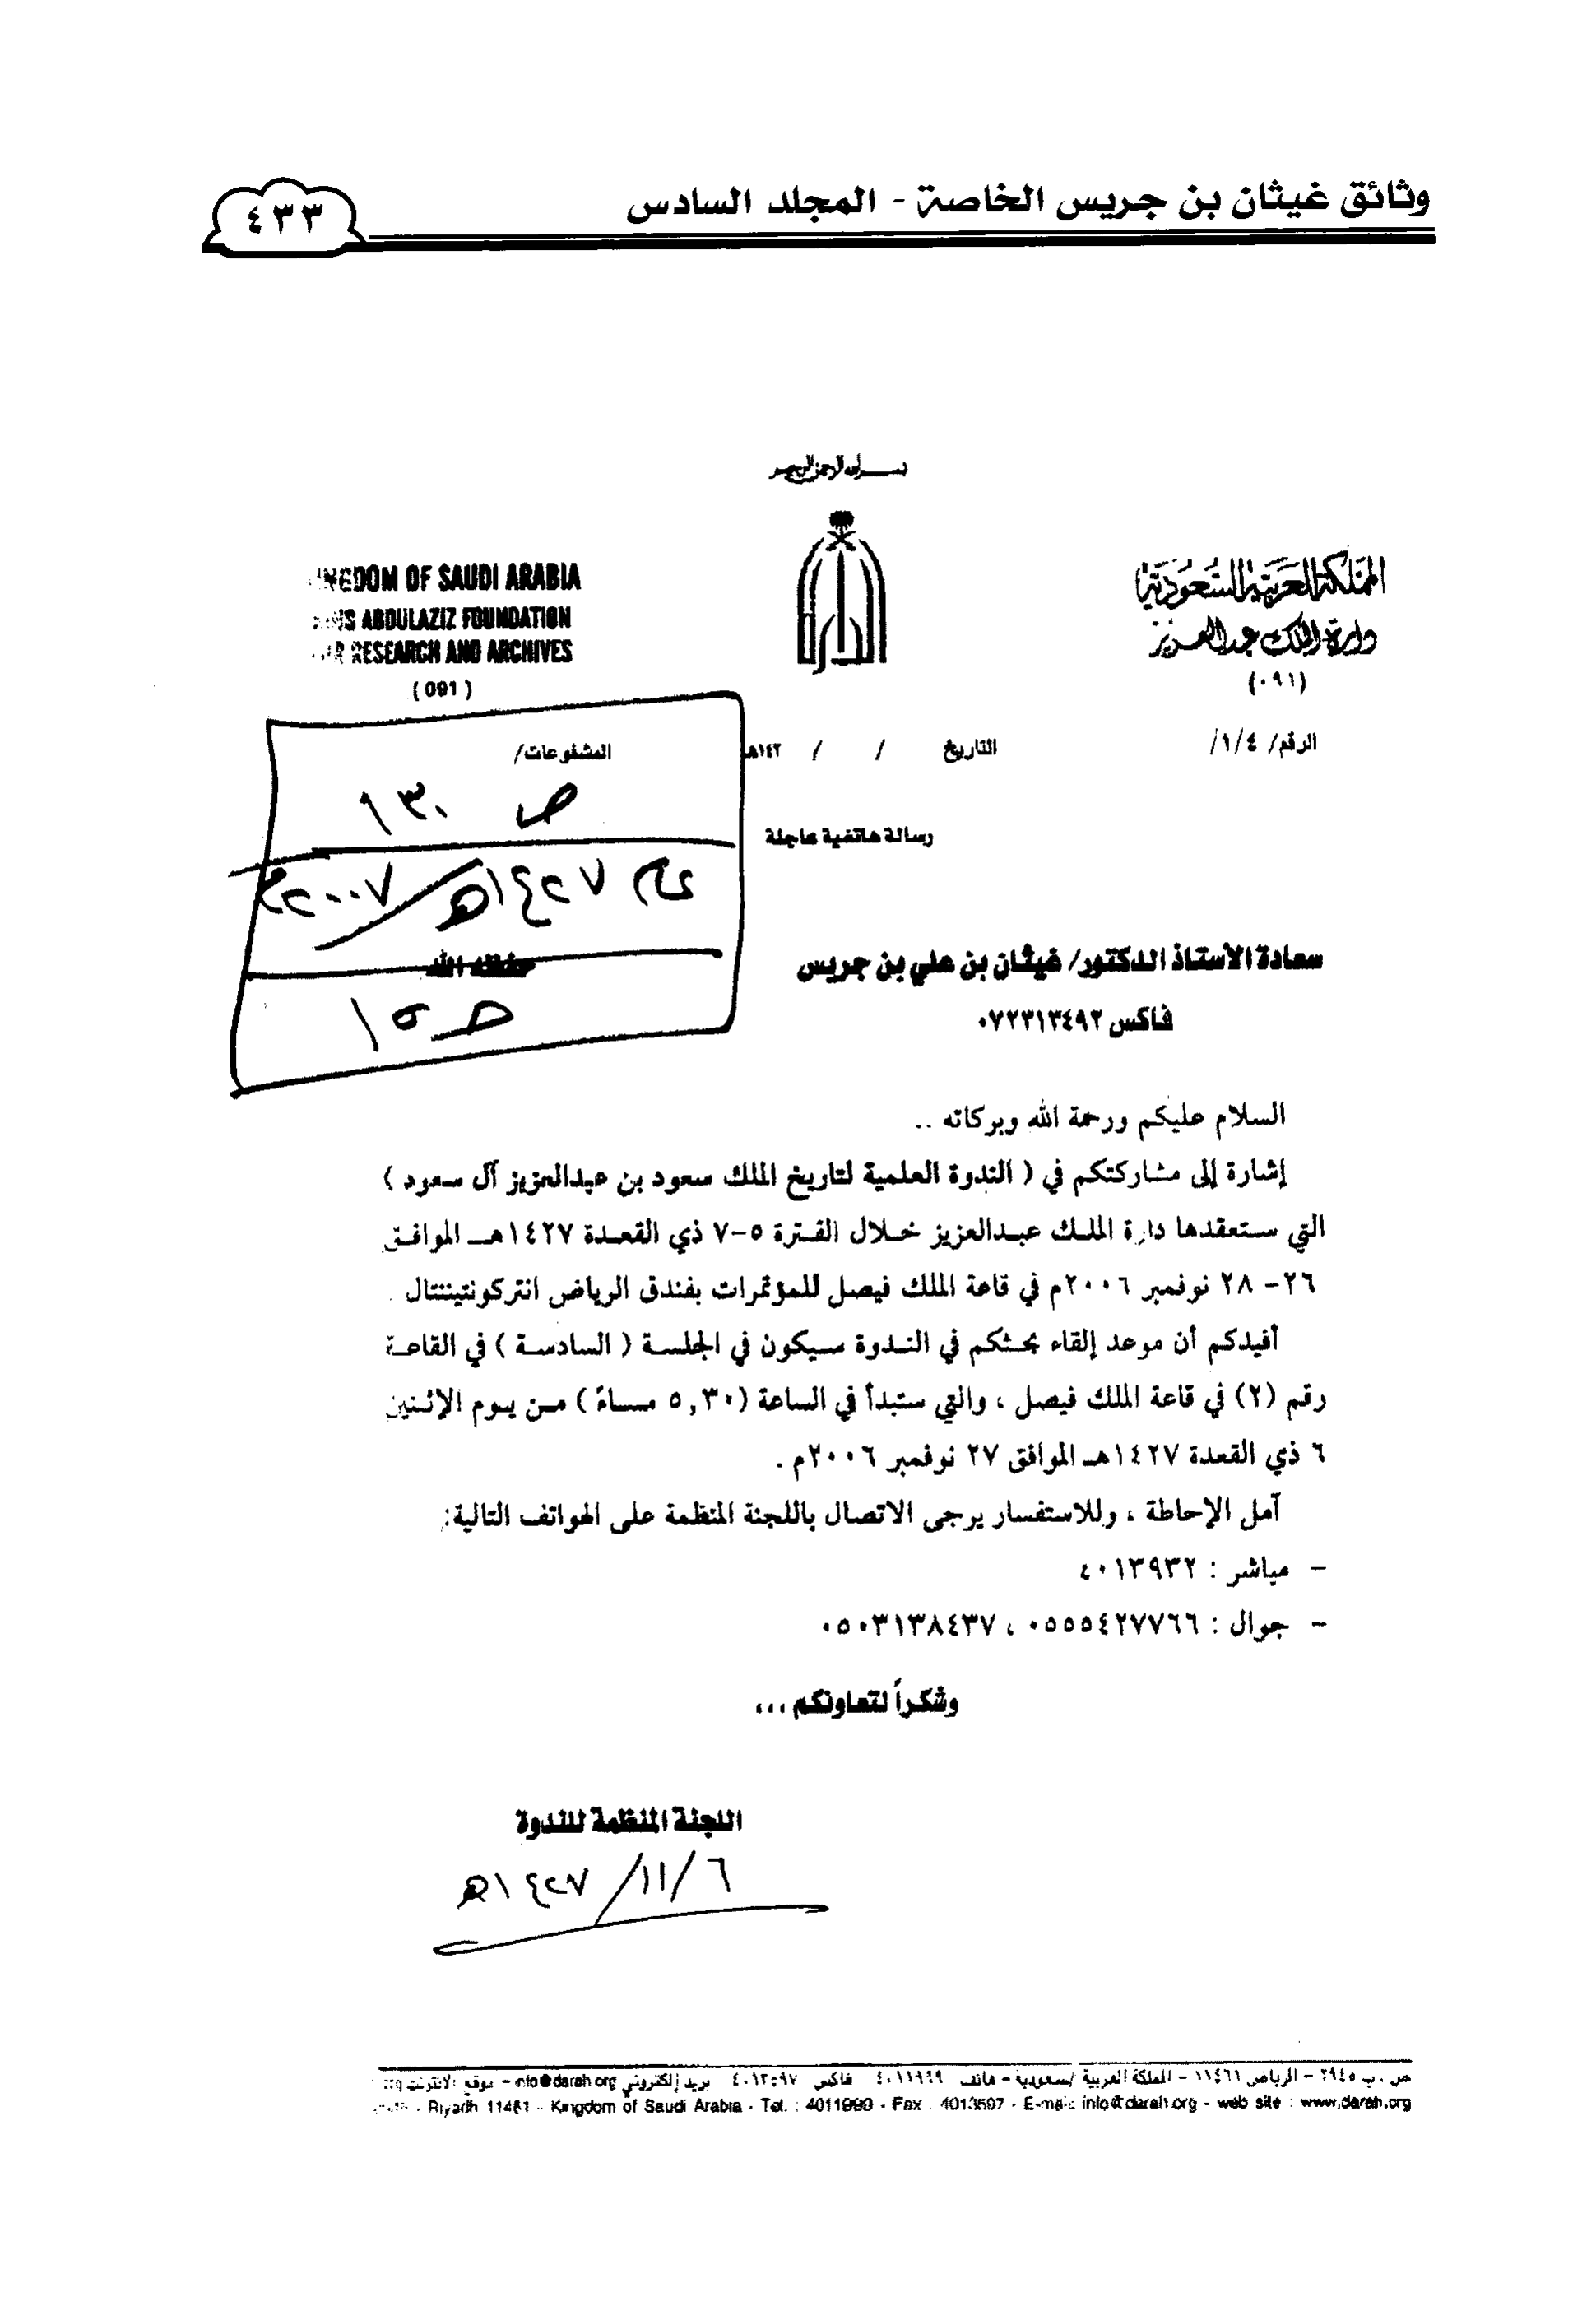 وثائق غيثان بن جريس الخاصة - المجلد السادس
٤٣٣
بسم الله الرحمن الرحيم
المملكة العربية السعودية
دارة الملك عبدالعزيز
(٠٩١)
KINGDOM OF SAUDI ARABIA
KING ABDULAZIZ FOUNDATION
FOR RESEARCH AND ARCHIVES
(091)
الرقم/ ١/٤/
التاريخ / / ١٤٢هـ
المشفوعات/
ص ١٣٠
رسالة هاتفية عاجلة
عام ١٤٢٧هـ/٢٠٠٧م
سعادة الأستاذ الدكتور/ غيثان بن علي بن جريس
حفظه الله
فاكس ٠٧٢٣١٣٤٩٢
ص ١٥
السلام عليكم ورحمة الله وبركاته ..
إشارة إلى مشاركتكم في ( الندوة العلمية لتاريخ الملك سعود بن عبدالعزيز آل سعود )
التي ستعقدها دارة الملك عبدالعزيز خلال الفترة ٥-٧ ذي القعدة ١٤٢٧هـ الموافق
٢٦- ٢٨ نوفمبر ٢٠٠٦م في قاعة الملك فيصل للمؤتمرات بفندق الرياض انتركونتيننتال .
أفيدكم أن موعد إلقاء بحثكم في الندوة سيكون في الجلسة ( السادسة ) في القاعة
رقم (٢) في قاعة الملك فيصل ، والتي ستبدأ في الساعة (٥,٣٠ مساءً ) من يوم الإثنين
٦ ذي القعدة ١٤٢٧هـ الموافق ٢٧ نوفمبر ٢٠٠٦م .
آمل الإحاطة ، وللاستفسار يرجى الاتصال باللجنة المنظمة على الهواتف التالية:
- مباشر : ٤٠١٣٩٣٢
- جوال : ٠٥٥٥٤٢٧٧٦٦ ، ٠٥٠٣١٣٨٤٣٧
وشكراً لتعاونكم ...
اللجنة المنظمة للندوة
٦/١١/١٤٢٧هـ
ص . ب ٢٩٤٥ - الرياض ١١٤٦١ - المملكة العربية السعودية - هاتف ٤٠١١٩٩٩ فاكس ٤٠١٣٥٩٧ بريد إلكتروني info@darah.org - موقع الانترنت
Riyadh 11461 - Kingdom of Saudi Arabia - Tel. : 4011999 - Fax : 4013597 - E-mail: info@darah.org - web site : www.darah.org